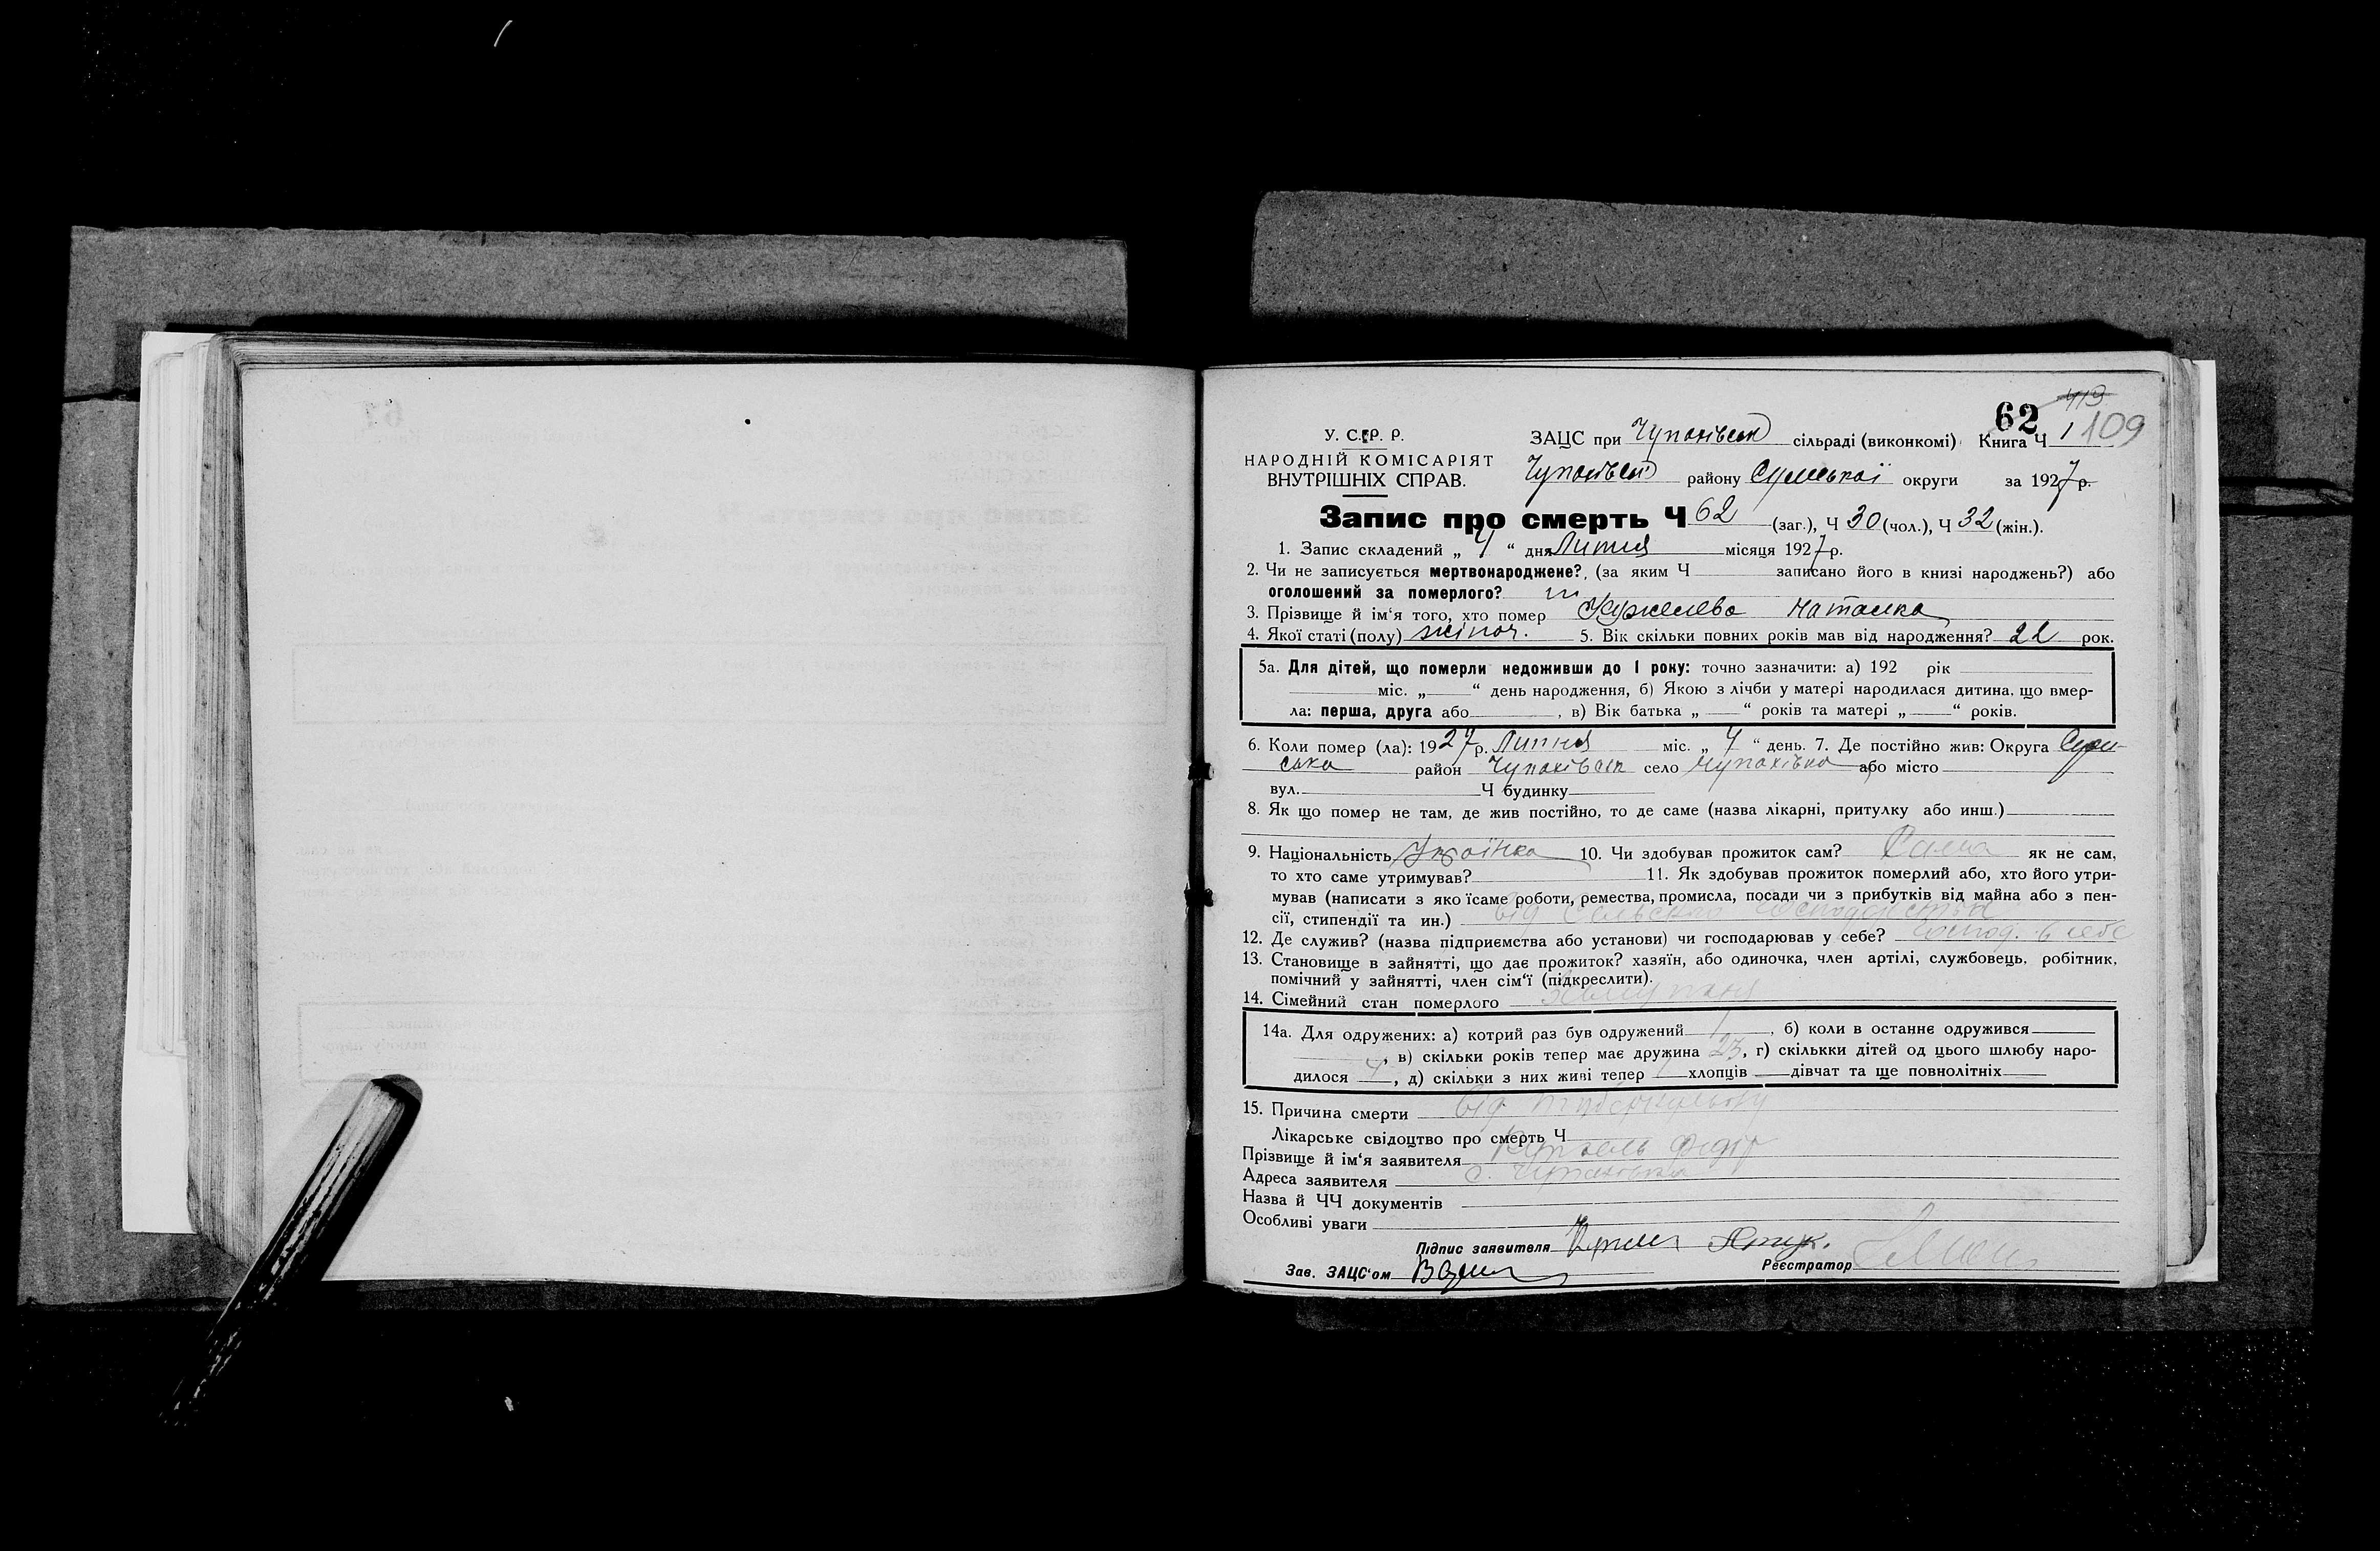 62 419
У. С. Р. Р. ЗАЦС при Чупахівськ сільраді (виконкомі) Книга Ч 1 109
НАРОДНІЙ КОМІСАРІЯТ
ВНУТРІШНІХ СПРАВ. Чупахівськ району Сумської округи за 1927 р.
Запис про смерть Ч 62 (заг.), Ч 30 (чол.), Ч 32 (жін.).
1. Запис складений „ 4 “ дня Липня місяця 1927 р.
2. Чи не записується мертвонароджене?, (за яким Ч записано його в книзі народжень?) або
оголошений за померлого? ні
3. Прізвище й ім‘я того, хто помер Наталка
4. Якої статі (полу) жіноч. 5. Вік скільки повних років мав від народження? 22 рок.
5а. Для дітей, що померли недоживши до 1 року: точно зазначити: а) 192 рік
міс. „ “ день народження, б) Якою з лічби у матері народилася дитина, що вмер-
ла: перша, друга або , в) Вік батька „ “ років та матері „ “ років.
6. Коли помер (ла): 1927 р. Липня міс. „ 4 “ день. 7. Де постійно жив: Округа Сум-
ська район Чупахівськ село Чупахівка або місто
вул. Ч будинку
8. Як що помер не там, де жив постійно, то де саме (назва лікарні, притулку або инш.)
9. Національність Українка 10. Чи здобував прожиток сам? Сама як не сам,
то хто саме утримував? 11. Як здобував прожиток померлий або, хто його утри-
мував (написати з яко їсаме роботи, ремества, промисла, посади чи з прибутків від майна або з пен-
сії, стипендії та ин.) від
12. Де служив? (назва підприємства або установи) чи господарював у себе? Господ. в себе
13. Становище в зайнятті, що дає прожиток? хазяїн, або одиночка, член артілі, службовець, робітник,
помічний у зайнятті, член сім‘ї (підкреслити).
14. Сімейний стан померлого
14а. Для одружених: а) котрий раз був одружений 1, б) коли в останнє одружився
, в) скільки років тепер має дружина 23, г) скількки дітей од цього шлюбу наро-
дилося , д) скільки з них живі тепер хлопців дівчат та ще повнолітніх
15. Причина смерти від туберкульозу
Лікарське свідоцтво про смерть Ч
Прізвище й ім‘я заявителя Федір
Адреса заявителя с. Чупахівка
Назва й ЧЧ документів
Особливі уваги
Підпис заявителя
Зав. ЗАЦС‘ом Реєстратор